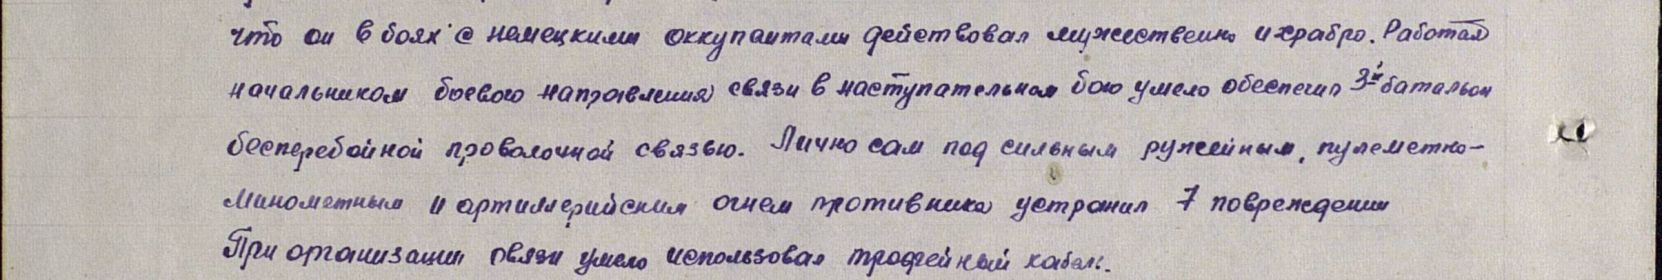 что он в боях с немецкими оккупантами действовал мужественно и храбро. Работая
начальником боевого направления связи в наступательном бою умело обеспечил 3й батальон
бесперебойной проволочной связью. Лично сам под сильным ружейным, пулеметно-
минометным и артиллерийским огнем противника устранил 7 повреждении
При организации связи умело использовал трофейный кабель.